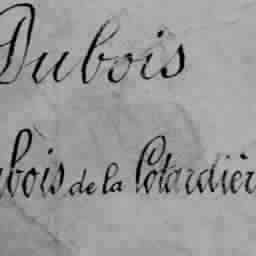 Dubois
ubois de la Cotardièr